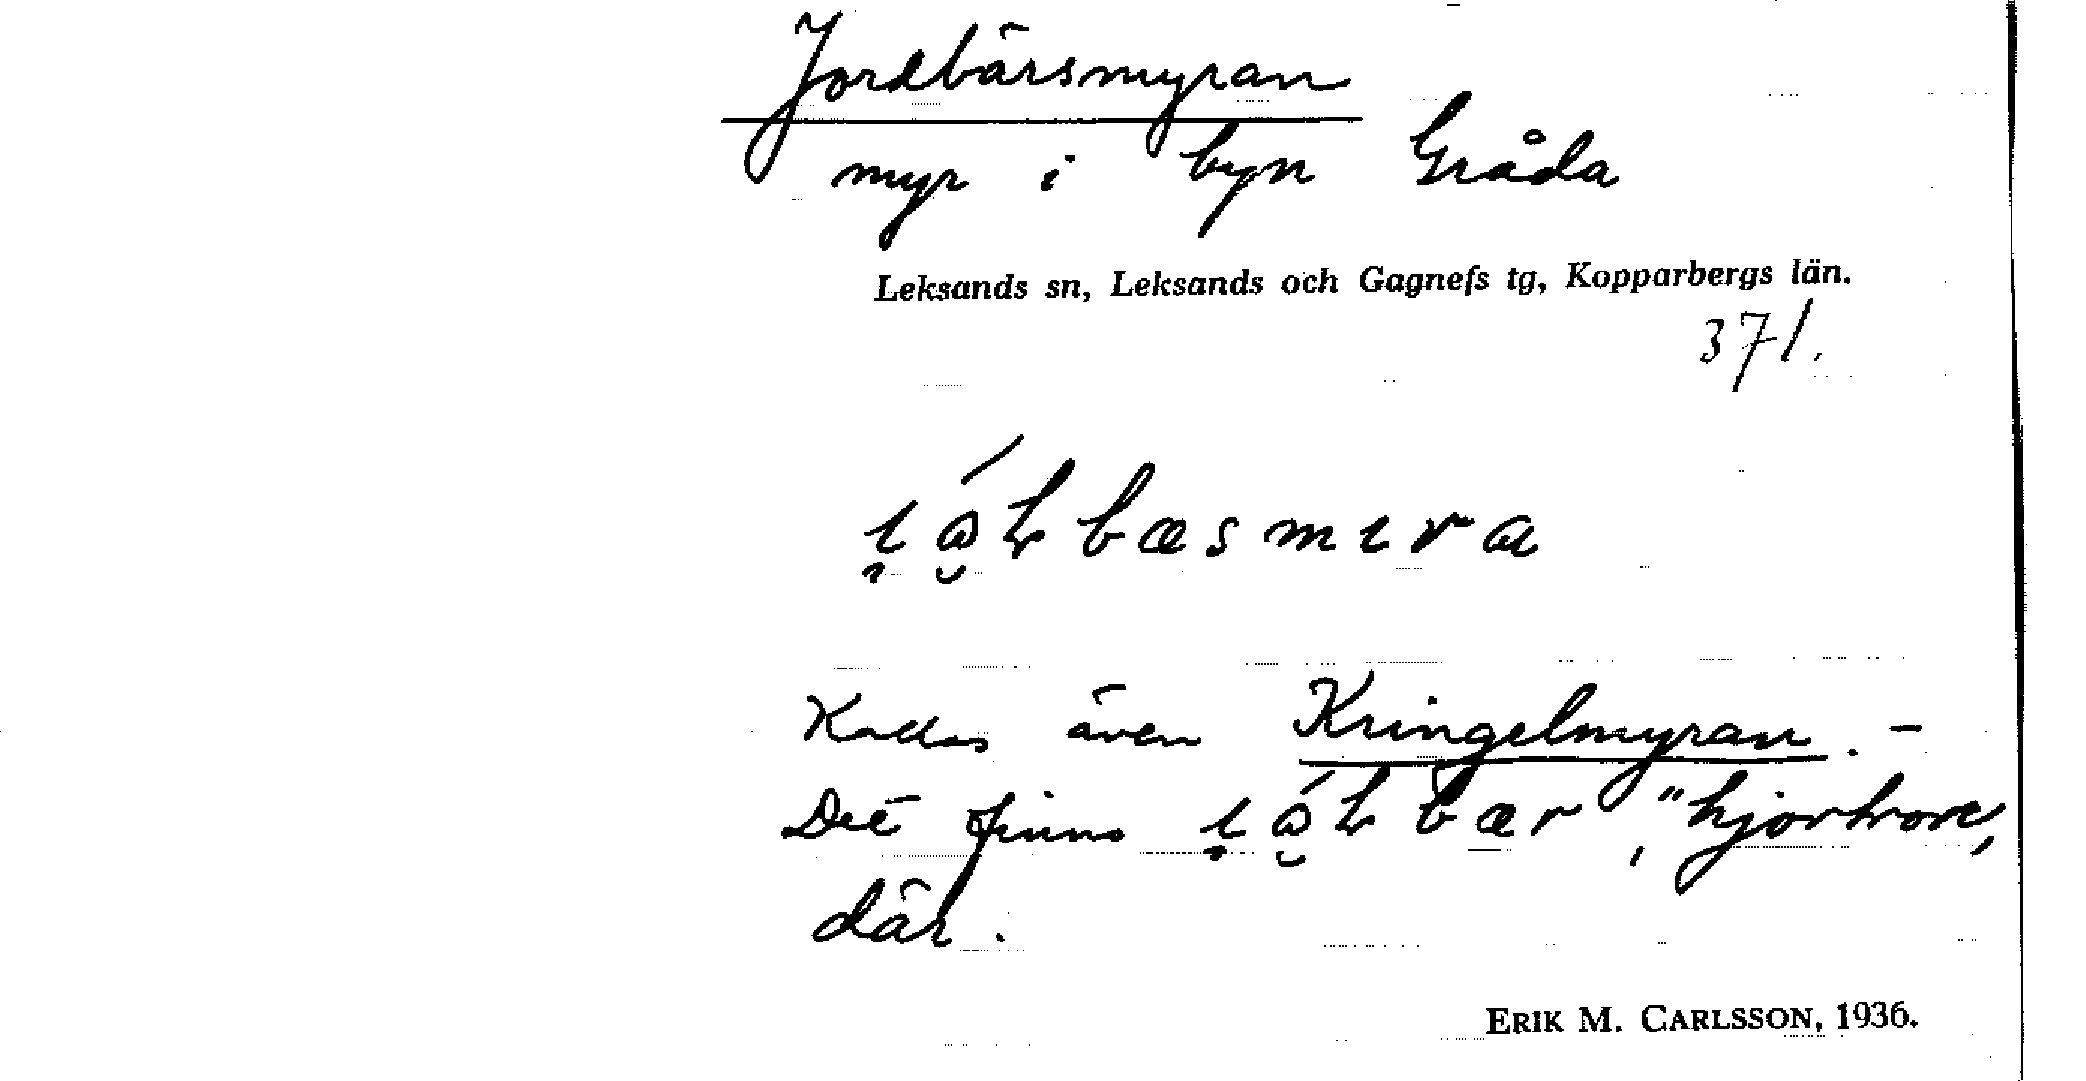 Jordbärsmyran
myr i byn Gråda
Leksands sn, Leksands och Gagnefs tg, Kopparbergs län.
371.
Kallas även Kringelmyran. –
Det finns "hjortron",
där.
ERIK M. CARLSSON, 1936.